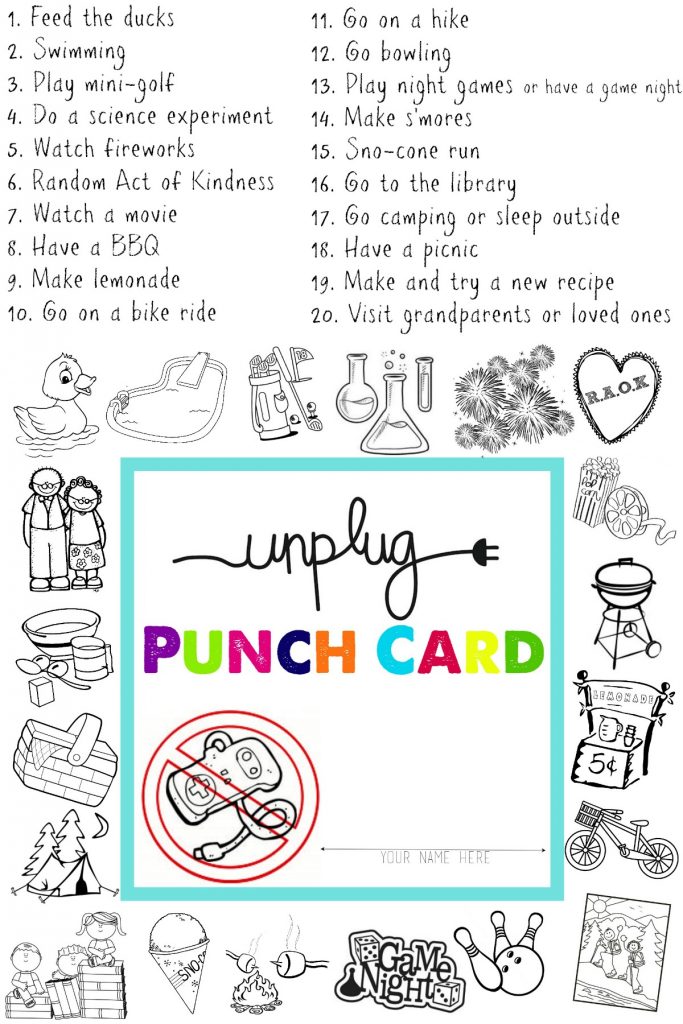 1. Feed the ducks
2. Swimming
3. Play mini-golf
4. Do a science experiment
5. Watch fireworks
6. Random Act of Kindness
7. Watch a movie
8. Have a BBQ
9. Make lemonade
10. Go on a bike ride
11. Go on a hike
12. Go bowling
13. Play night games or have a game night
14. Make s'mores
15. Sno-cone run
16. Go to the library
17. Go camping or sleep outside
18. Have a picnic
19. Make and try a new recipe
20. Visit grandparents or loved ones
18
R.A.O.K
unplug
PUNCH CARD
LEMONADE
5¢
YOUR NAME HERE
GAME
NIGHT